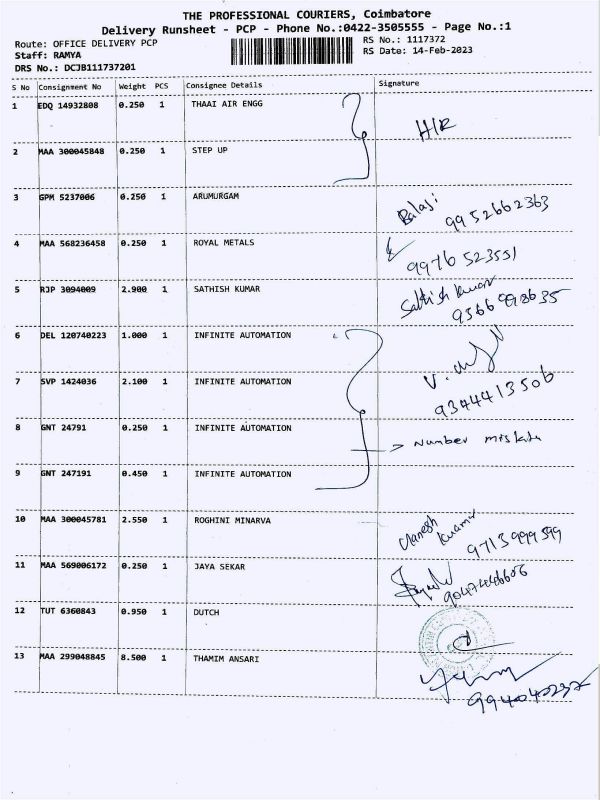 THE PROFESSIONAL COURIERS, Coimbatore
Delivery Runsheet - PCP - Phone No.:0422-3505555 - Page No.:1
Route: OFFICE DELIVERY PCP RS No.: 1117372
Staff: RAMYA RS Date: 14-Feb-2023
DRS No.: DCJB111737201
S No Consignment No Weight PCS Consignee Details Signature
1 EDQ 14932808 0.250 1 THAAI AIR ENGG
H/R
2 MAA 300045848 0.250 1 STEP UP
3 GPM 5237006 0.250 1 ARUMURGAM Balaji
9952662363
4 MAA 568236458 0.250 1 ROYAL METALS
9976523551
5 RJP 3094009 2.900 1 SATHISH KUMAR Sathish kumar
9366998635
6 DEL 120740223 1.000 1 INFINITE AUTOMATION
7 SVP 1424036 2.100 1 INFINITE AUTOMATION
9344413506
8 GNT 24791 0.250 1 INFINITE AUTOMATION
Number
9 GNT 247191 0.450 1 INFINITE AUTOMATION
10 MAA 300045781 2.550 1 ROGHINI MINARVA
kumar
9713999399
11 MAA 569006172 0.250 1 JAYA SEKAR
12 TUT 6360843 0.950 1 DUTCH
13 MAA 299048845 8.500 1 THAMIM ANSARI